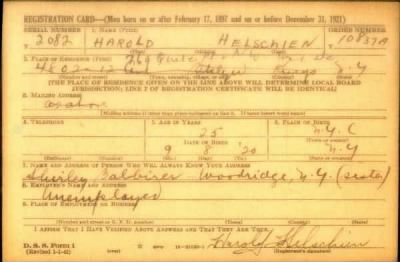 REGISTRATION CARD—(Men born on or after February 17, 1897 and on or before December 31, 1921)
SERIAL NUMBER 1. NAME (Print) ORDER NUMBER
2082 HAROLD HELSCHIEN 10837A
(First) (Middle) (Last)
2. PLACE OF RESIDENCE (Print)
4802-12 N.Y
(Number and street) (Town, township, village, or city) (County) (State)
[THE PLACE OF RESIDENCE GIVEN ON THE LINE ABOVE WILL DETERMINE LOCAL BOARD
JURISDICTION; LINE 2 OF REGISTRATION CERTIFICATE WILL BE IDENTICAL]
3. MAILING ADDRESS
as above
4. TELEPHONE 5. AGE IN YEARS 6. PLACE OF BIRTH
25 N.Y.C
DATE OF BIRTH (Town or county)
9 8 '20 N.Y
(Mo.) (Day) (Yr.) (State or country)
7. NAME AND ADDRESS OF PERSON WHO WILL ALWAYS KNOW YOUR ADDRESS
Shirley Balbirer Woodridge, N.Y. (sister)
8. EMPLOYER'S NAME AND ADDRESS
Unemployed
9. PLACE OF EMPLOYMENT OR BUSINESS
(Number and street or R. F. D. number) (Town) (County) (State)
I AFFIRM THAT I HAVE VERIFIED ABOVE ANSWERS AND THAT THEY ARE TRUE.
D. S. S. Form 1 Harold Helschien
(Revised 1-1-42) (Registrant's signature)